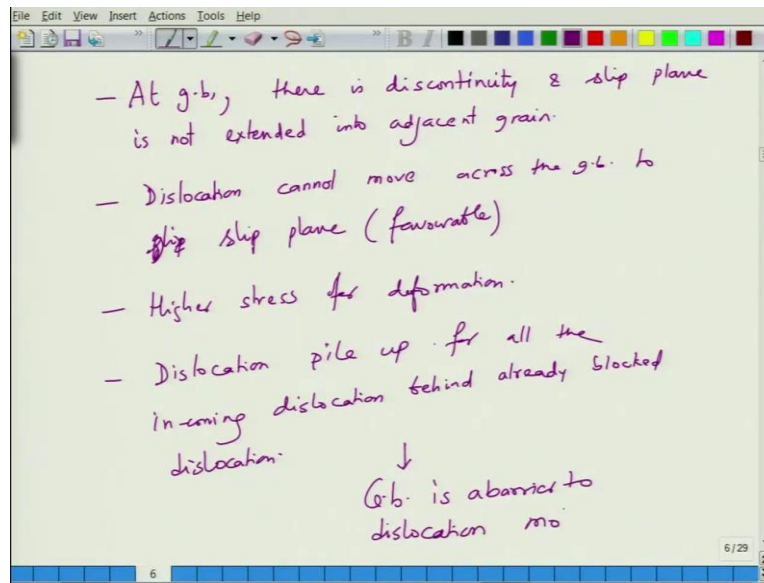 File Edit View Insert Actions Tools Help
B I
– At g.b., there is discontinuity & slip plane
is not extended into adjacent grain.
– Dislocation cannot move across the g.b. to
slip plane (favourable)
– Higher stress for deformation.
– Dislocation pile up for all the
in-coming dislocation behind already blocked
dislocation.
↓
G.b. is a barrier to
dislocation mo
6/29
6